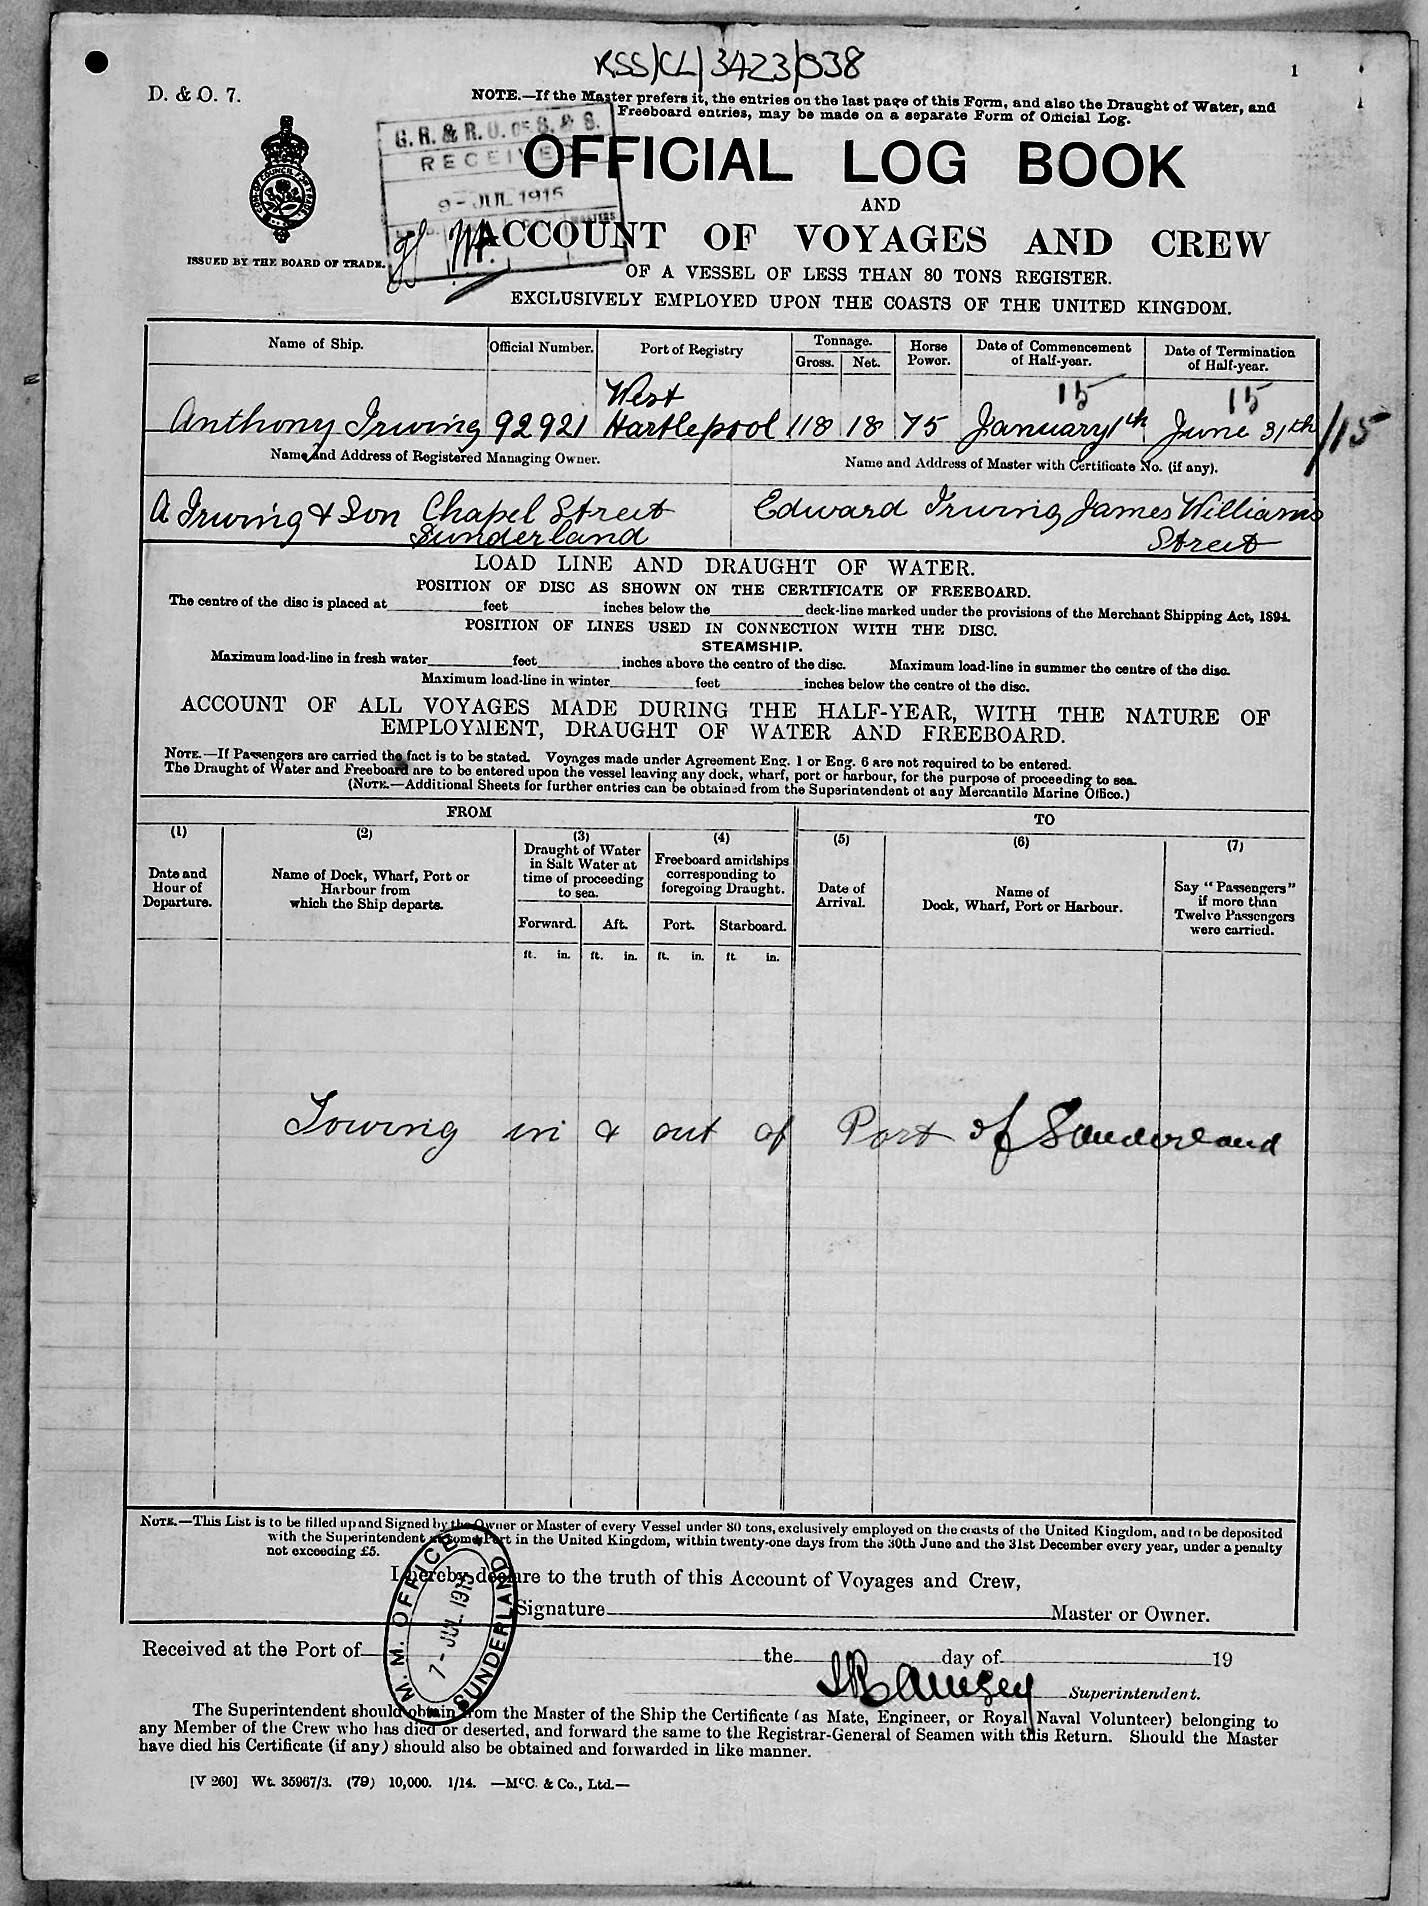 RSS/CL/3423/038
1
D. & O. 7.
NOTE.—If the Master prefers it, the entries on the last page of this Form, and also the Draught of Water, and
Freeboard entries, may be made on a separate Form of Official Log.
G. R. & R. O. OF S. & S.
RECEIVED
9 - JUL 1915
OFFICIAL LOG BOOK
AND
ACCOUNT OF VOYAGES AND CREW
ISSUED BY THE BOARD OF TRADE.
OF A VESSEL OF LESS THAN 80 TONS REGISTER.
EXCLUSIVELY EMPLOYED UPON THE COASTS OF THE UNITED KINGDOM.
Name of Ship. Official Number. Port of Registry Tonnage. Gross. Net. Horse Power. Date of Commencement of Half-year. Date of Termination of Half-year.
West 15 15
Anthony Irwing 92921 Hartlepool 118 18 75 January 1th June 31th /15
Name and Address of Registered Managing Owner. Name and Address of Master with Certificate No. (if any).
A Irwing & Son Chapel Street Edward Irwing James Williams
Sunderland Street
LOAD LINE AND DRAUGHT OF WATER.
POSITION OF DISC AS SHOWN ON THE CERTIFICATE OF FREEBOARD.
The centre of the disc is placed at feet inches below the deck-line marked under the provisions of the Merchant Shipping Act, 1894.
POSITION OF LINES USED IN CONNECTION WITH THE DISC.
STEAMSHIP.
Maximum load-line in fresh water feet inches above the centre of the disc. Maximum load-line in summer the centre of the disc.
Maximum load-line in winter feet inches below the centre of the disc.
ACCOUNT OF ALL VOYAGES MADE DURING THE HALF-YEAR, WITH THE NATURE OF
EMPLOYMENT, DRAUGHT OF WATER AND FREEBOARD.
NOTE.—If Passengers are carried the fact is to be stated. Voyages made under Agreement Eng. 1 or Eng. 6 are not required to be entered.
The Draught of Water and Freeboard are to be entered upon the vessel leaving any dock, wharf, port or harbour, for the purpose of proceeding to sea.
(NOTE.—Additional Sheets for further entries can be obtained from the Superintendent of any Mercantile Marine Office.)
FROM TO
(1) (2) (3) (4) (5) (6) (7)
Date and
Hour of
Departure.
Name of Dock, Wharf, Port or
Harbour from
which the Ship departs.
Draught of Water
in Salt Water at
time of proceeding
to sea.
Freeboard amidships
corresponding to
foregoing Draught.
Date of
Arrival.
Name of
Dock, Wharf, Port or Harbour.
Say "Passengers"
if more than
Twelve Passengers
were carried.
Forward. Aft. Port. Starboard.
ft. in. ft. in. ft. in. ft. in.
Towing in & out of Port of Sunderland
NOTE.—This List is to be filled up and Signed by the Owner or Master of every Vessel under 80 tons, exclusively employed on the coasts of the United Kingdom, and to be deposited
with the Superintendent at some Port in the United Kingdom, within twenty-one days from the 30th June and the 31st December every year, under a penalty
not exceeding £5.
I hereby declare to the truth of this Account of Voyages and Crew,
Signature Master or Owner.
M. M. OFFICE
7 - JUL 1915
SUNDERLAND
Received at the Port of the day of 19
Ramsey Superintendent.
The Superintendent should obtain from the Master of the Ship the Certificate (as Mate, Engineer, or Royal Naval Volunteer) belonging to
any Member of the Crew who has died or deserted, and forward the same to the Registrar-General of Seamen with this Return. Should the Master
have died his Certificate (if any) should also be obtained and forwarded in like manner.
[V 260] Wt. 35967/3. (79) 10,000. 1/14. —McC. & Co., Ltd.—